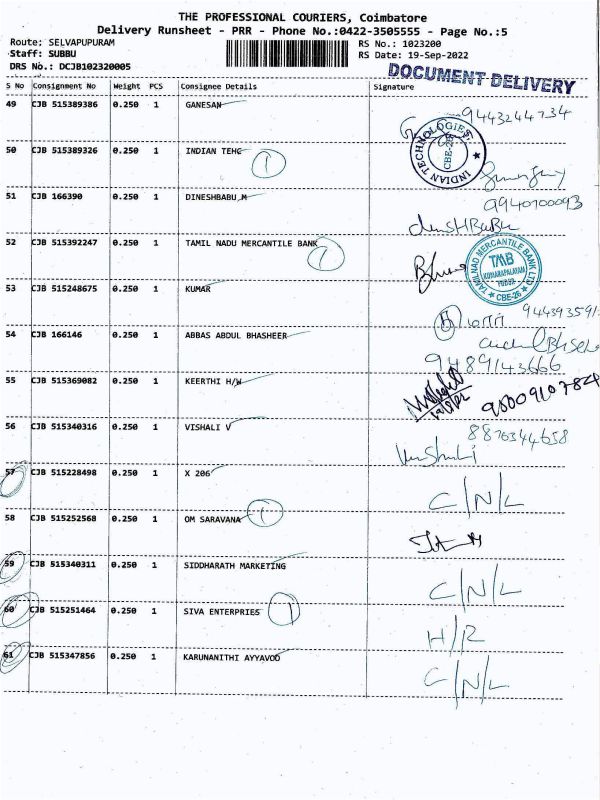 THE PROFESSIONAL COURIERS, Coimbatore
Delivery Runsheet - PRR - Phone No.:0422-3505555 - Page No.:5
Route: SELVAPUPURAM
Staff: SUBBU
DRS No.: DCJB102320005
RS No.: 1023200
RS Date: 19-Sep-2022
DOCUMENT DELIVERY
S No Consignment No Weight PCS Consignee Details Signature
49 CJB 515389386 0.250 1 GANESAN 9443244734
50 CJB 515389326 0.250 1 INDIAN TEHC 1
INDIAN TECHNOLOGIES
CBE-26
51 CJB 166390 0.250 1 DINESHBABU,M 9940700093
52 CJB 515392247 0.250 1 TAMIL NADU MERCANTILE BANK 1
TAMILNAD MERCANTILE BANK LTD
TMB
CBE-26
53 CJB 515248675 0.250 1 KUMAR
54 CJB 166146 0.250 1 ABBAS ABDUL BHASHEER
9489143666
55 CJB 515369082 0.250 1 KEERTHI H/W
56 CJB 515340316 0.250 1 VISHALI V 8870344658
57 CJB 515228498 0.250 1 X 206 C/N/L
58 CJB 515252568 0.250 1 OM SARAVANA 1
59 CJB 515340311 0.250 1 SIDDHARATH MARKETING C/N/L
60 CJB 515251464 0.250 1 SIVA ENTERPRIES 1 H/R
61 CJB 515347856 0.250 1 KARUNANITHI AYYAVOO C/N/L